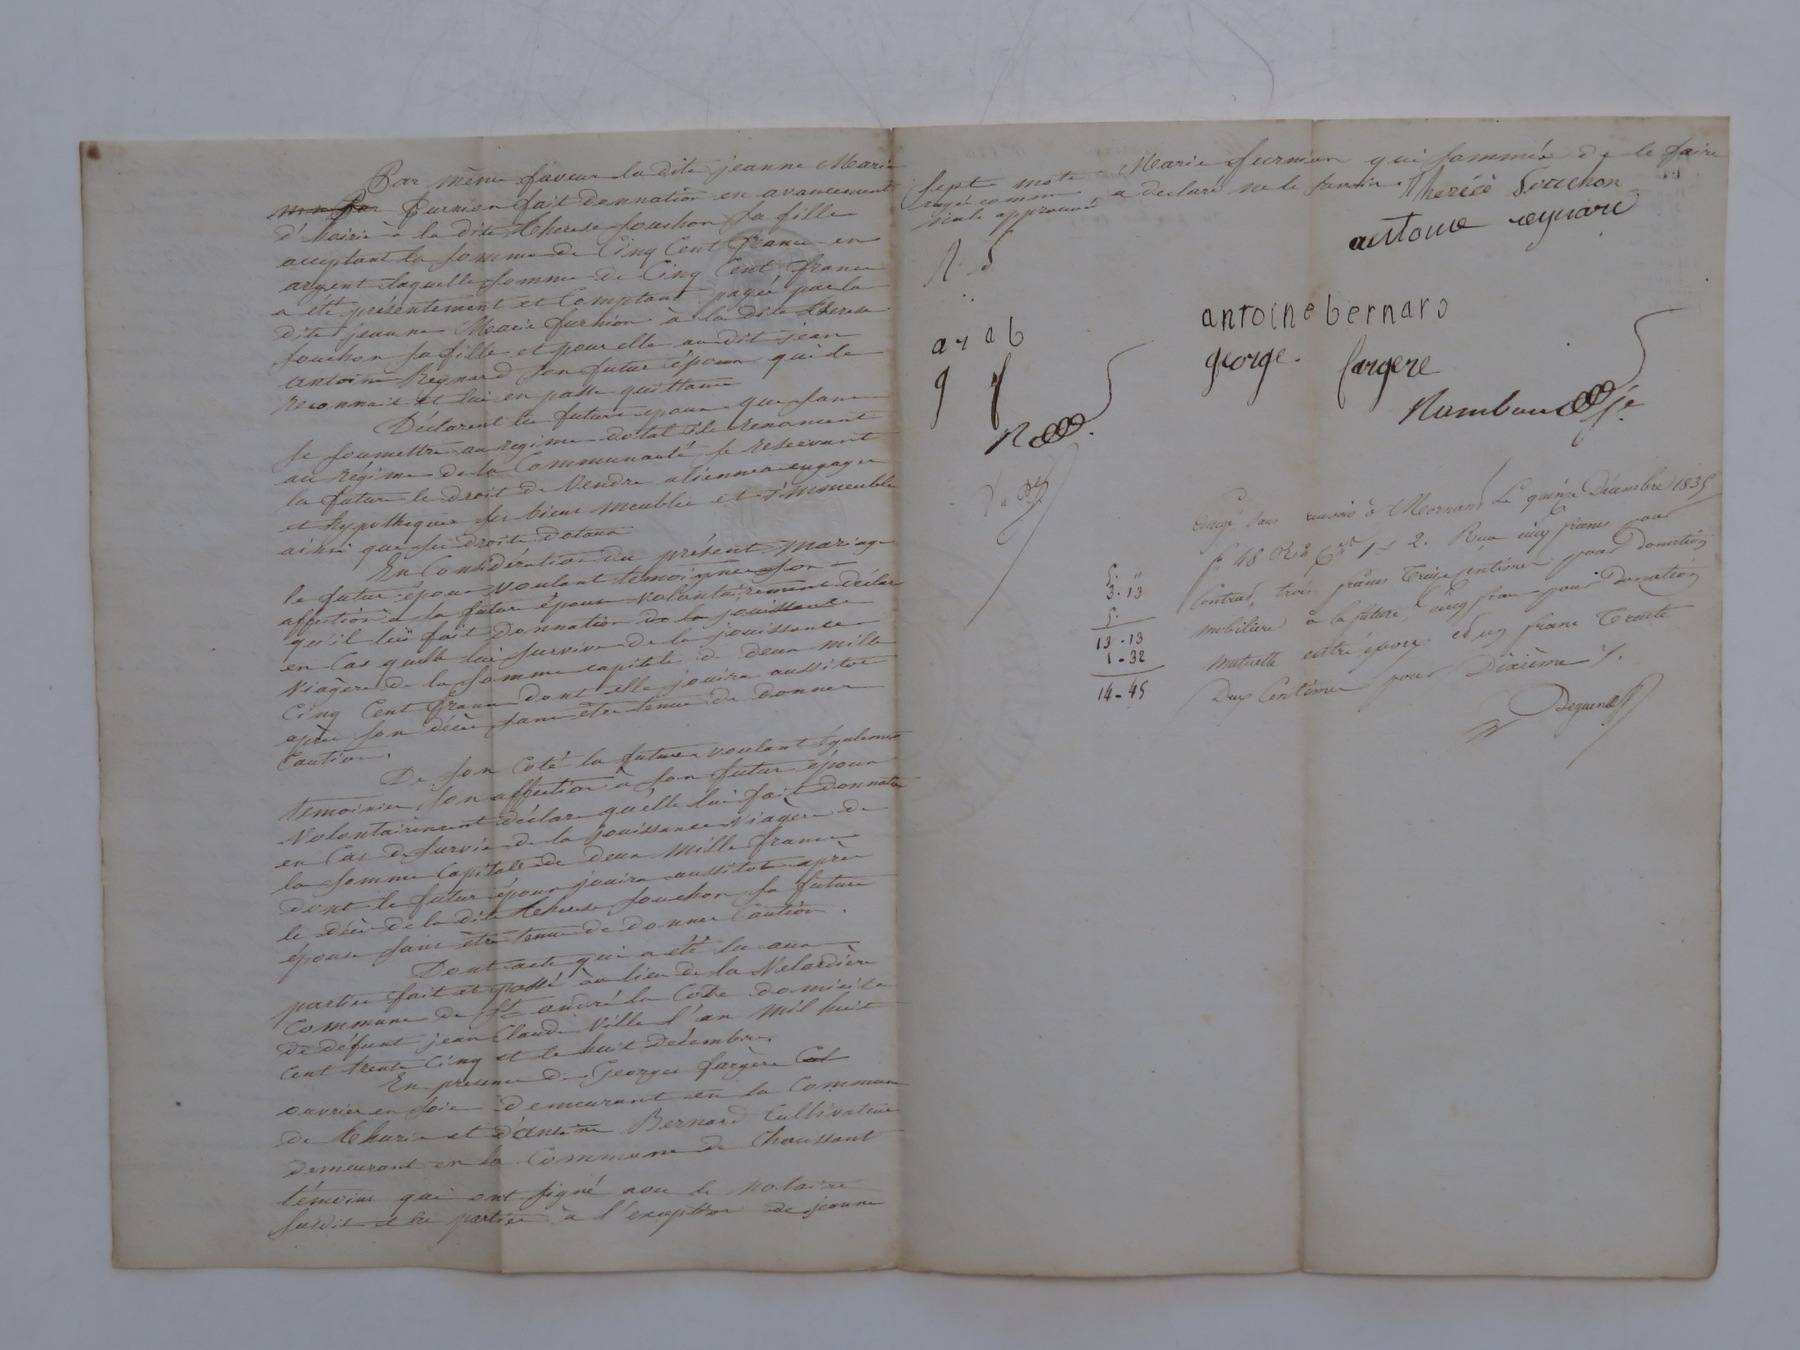 Par même faveur la dite jeanne Marie
furnion fait donnation en avancement
d'hoirie à la dite therese souchon sa fille
acceptant la somme de Cinq Cent franc en
argent laquelle somme de Cinq Cent franc
a été présentement et Comptant payée par la
dite jeanne Marie furnion à la dite therese
souchon sa fille et pour elle au dit jean
antoine Reynard son futur époux qui le
reconnait et lui en passe quittance
Déclarent les futurs époux que sans
se soumettre au régime dotal ils renoncent
au régime de la Communauté se reservant
la future le droit de Vendre aliénner engager
et hypothequer ses biens meubles et immeubles
ainsi que ses droits dotaux
En Considération du présent mariage
le futur époux voulant temoigner son
affection à sa future épouse volontairement déclare
qu'il lui fait donnation de la jouissance
en Cas quelle lui survive de la jouissance
Viagère de la somme capitale de deux mille
Cinq Cent franc dont elle jouira aussitot
après son décès sans être tenue de donner
Caution.
De son Coté la future voulant également
temoinier son affection à son futur époux
Volontairement déclare qu'elle lui fait donnation
en Cas de survie de la jouissance Viagère de
la somme Capitale de deux Mille franc
dont le futur époux jouira aussitot après
le décès de la dite therese souchon sa future
épouse sans être tenu de donner Caution.
Dont acte qui a été lu aux
parties fait et passé au lieu de la Velardière
Commune de St andré la Cote domicile
de défunt jean Claude Ville l'an mil huit
Cent trente Cinq et le huit décembre,
En presence de Georges fargère Cul
ouvrier en soie demeurant en la Commune
de thurin et d'Antoine Bernard Cultivateur
demeurant en la Commune de Chaussant
témoins qui ont signé avec le notaire
susdit et les parties à l'exception de jeanne
Marie furnion qui sommée de le faire
a déclaré ne le savoir.
Sept mots
rayé comme
nuls approuvé
Therese Souchon
antoine reynard
R. S
a r a b
antoine bernard
george. fargere
g f
Enregé sans renvois à Mornant Le quinze Décembre 1835
f° 48 Ro Ces 1 et 2. Reçu cinq francs pour
Contrat, trois francs treize centimes pour donation
mobiliere à la future, cinq francs pour Donation
mutuelle entre époux et un franc Trente
Deux Centimes pour Dixième
5. "
3. 13
5.
13 - 13
1 - 32
14 - 45